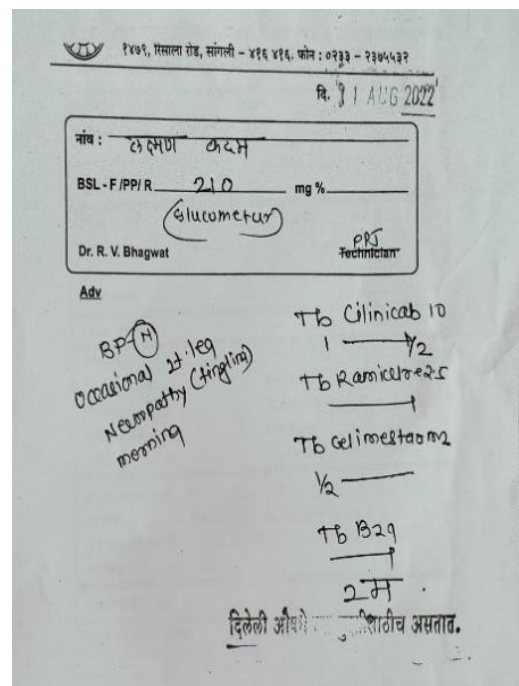 १४७९, रिसाला रोड, सांगली – ४१६ ४१६. फोन : ०२३३ – २३७५५३२
दि. 31 AUG 2022
नांव : लक्ष्मण कदम
BSL - F /PP/ R 210 mg %
Glucometer
Dr. R. V. Bhagwat
Technician
Adv
BP-(N)
Occasional leg
Neuropathy (tingling)
morning
Tb Cilinicab 10
1 — 1/2
Tb
Tb
1/2 —
Tb B29
2 म
दिलेली साठीच असतात.